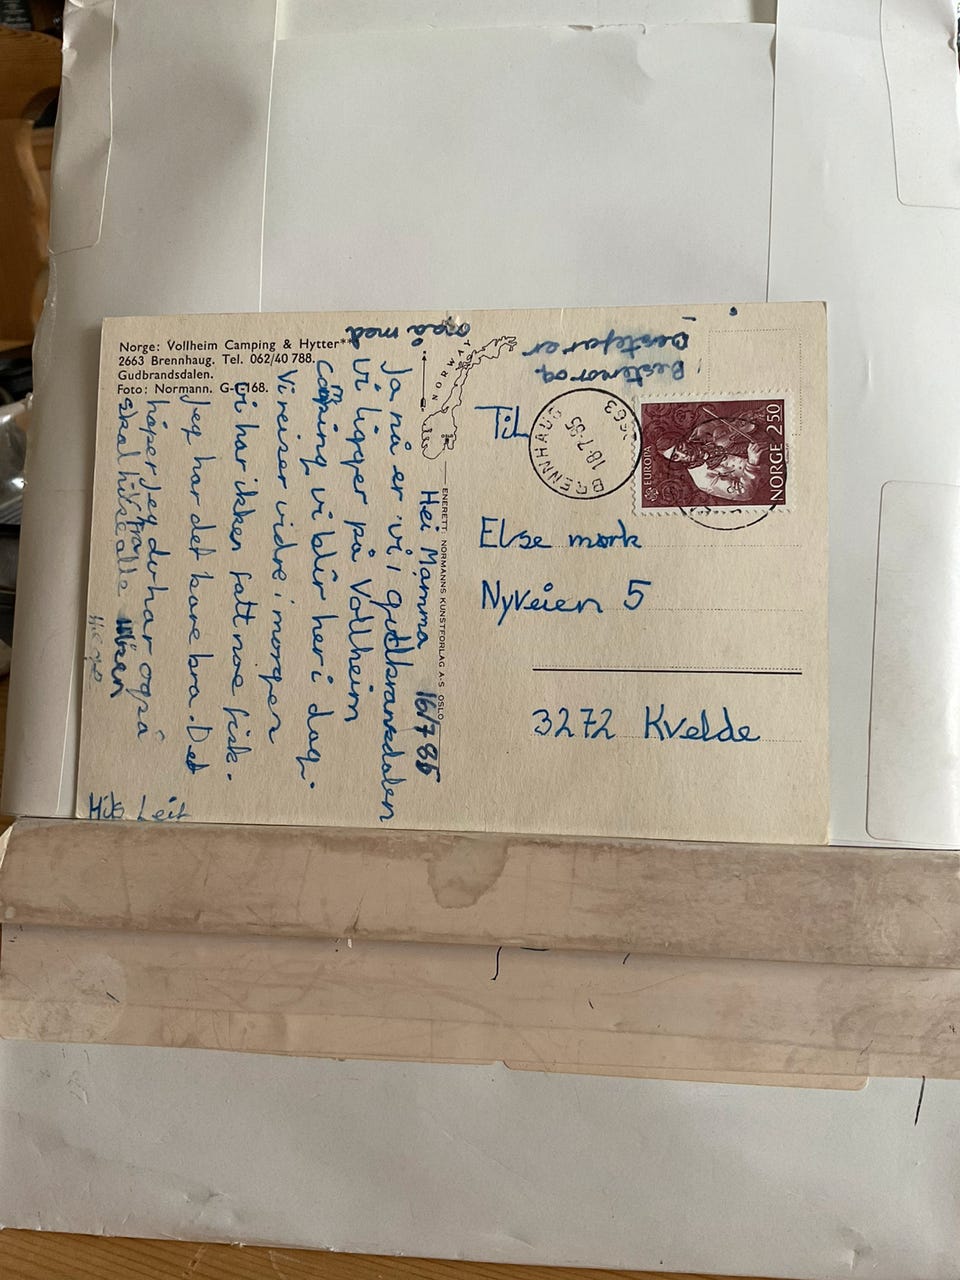 Norge: Vollheim Camping & Hytter**
2663 Brennhaug. Tel. 062/40 788.
Gudbrandsdalen.
Foto: Normann. G-6-168.
NORWAY
ENERETT: NORMANNS KUNSTFORLAG A-S OSLO
Hei Mamma 16/7 85
Ja nå er vi i gudbrandsdalen
Vi ligger på Vollheim
Camping vi blir her i dag.
Vi reiser vidre i morgen
vi har ikken fatt noe fisk.
Jeg har det bare bra. Det
håper jeg du har også
skal hilse alle
fra
Hils Leif
Bestemor og
Bestefar er
også med
Til
Else mørk
Nyveien 5
3272 Kvelde
BRENNHAUG
18-7-85
2663
EUROPA
NORGE 250